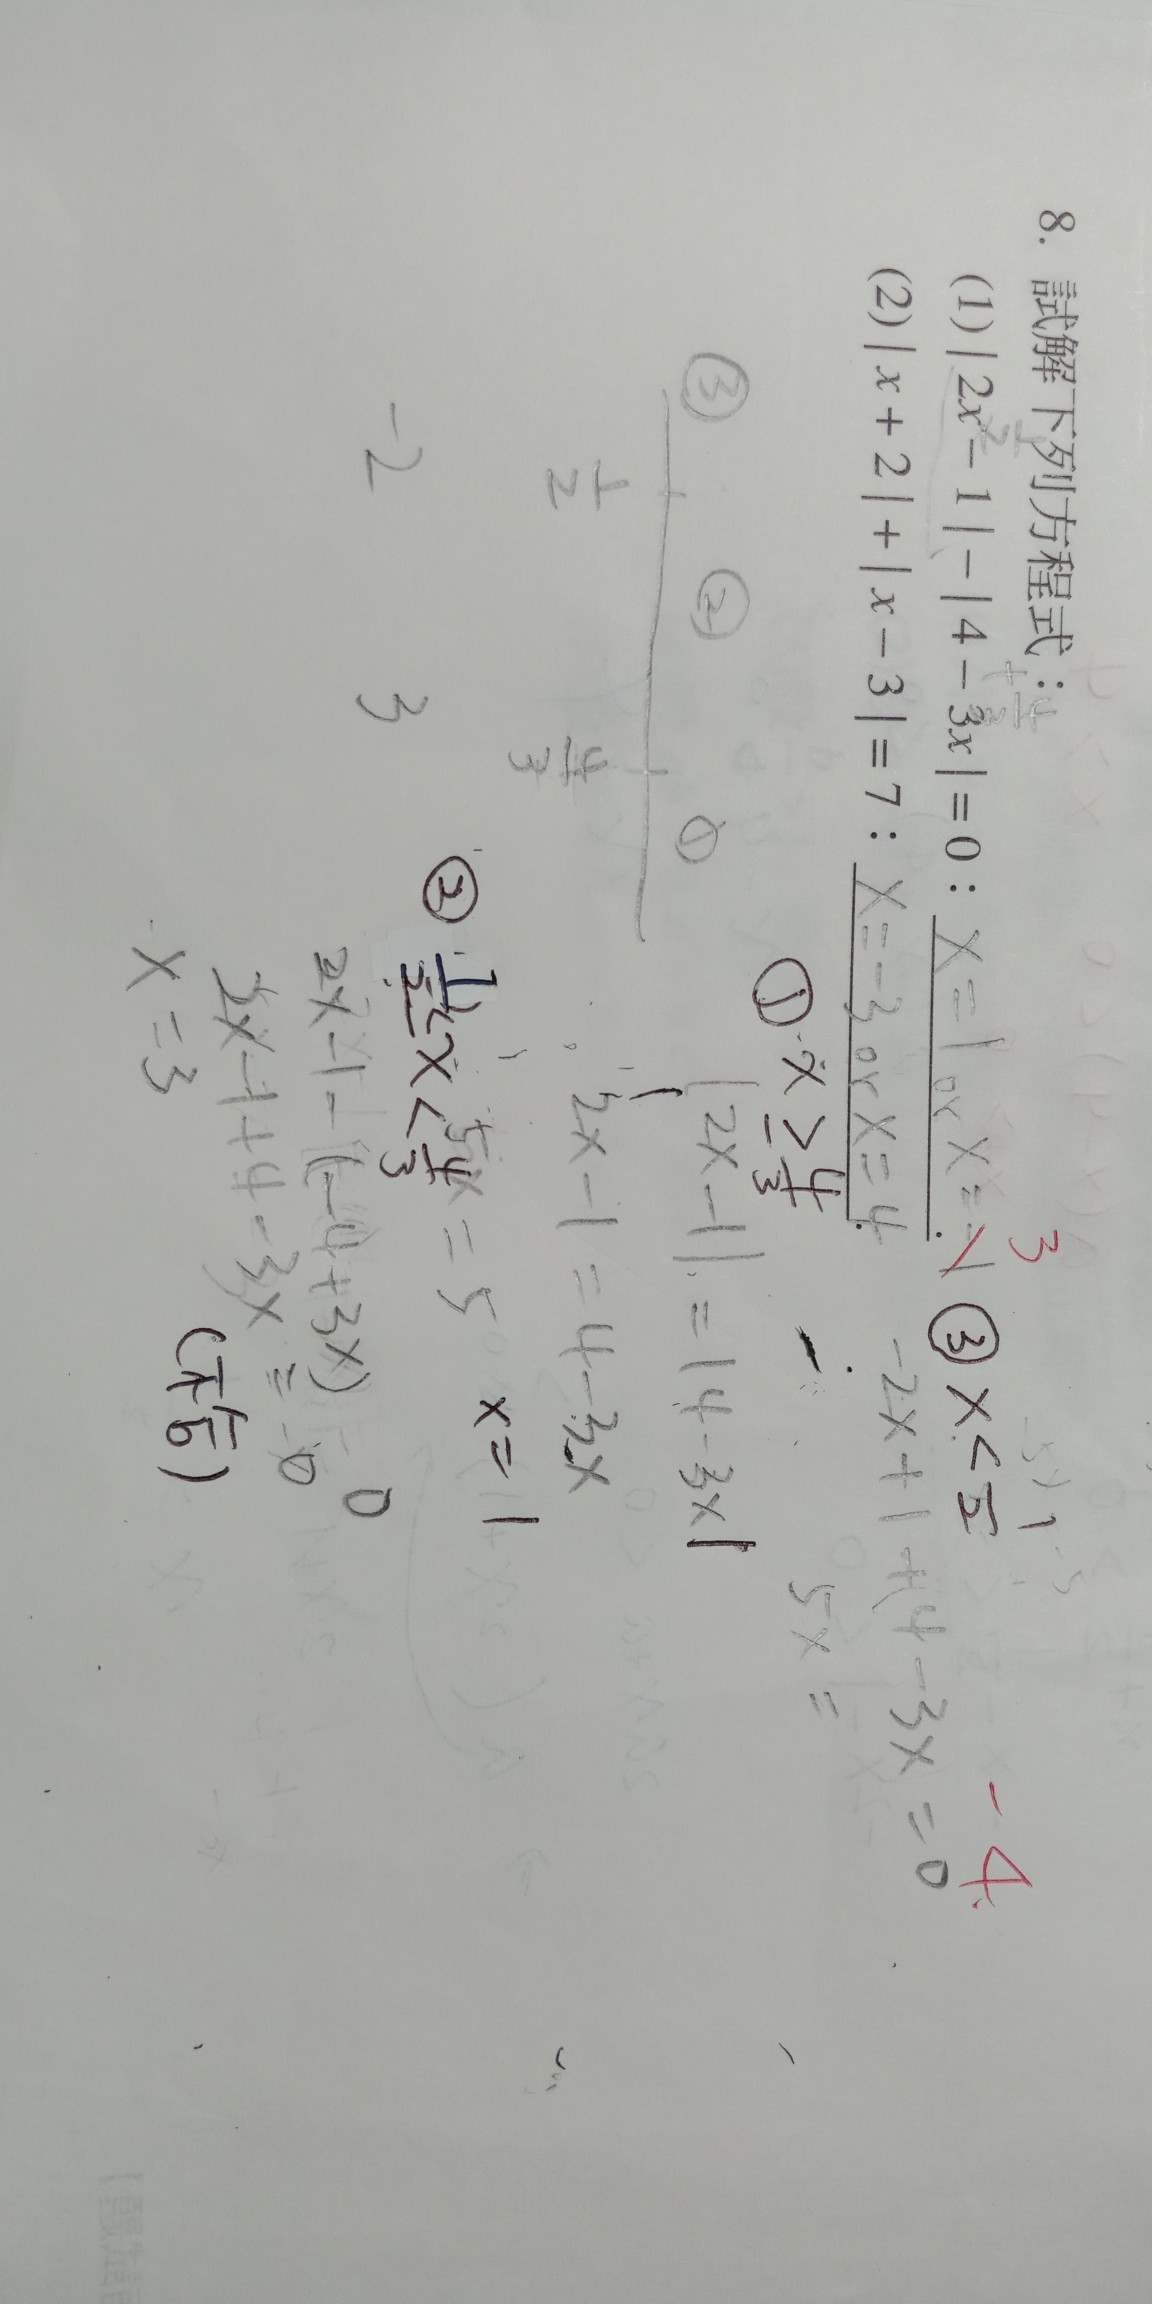 8. 試解下列方程式：
(1) | 2x − 1 | − | 4 − 3x | = 0： x = 1 or x = 3
(2) | x + 2 | + | x − 3 | = 7： x = −3 or x = 4
− 4
③ ② ①
1/2 4/3
−2 3
① x ≥ 4/3
| 2x − 1 | = | 4 − 3x |
2x − 1 = 4 − 3x
5x = 5 x = 1
② 1/2 < x < 4/3
2x − 1 − (−4 + 3x) = 0
2x − 1 + 4 − 3x = 0
x = 3 (不合)
③ x < 1/2
−2x + 1 + (4 − 3x = 0
5x =